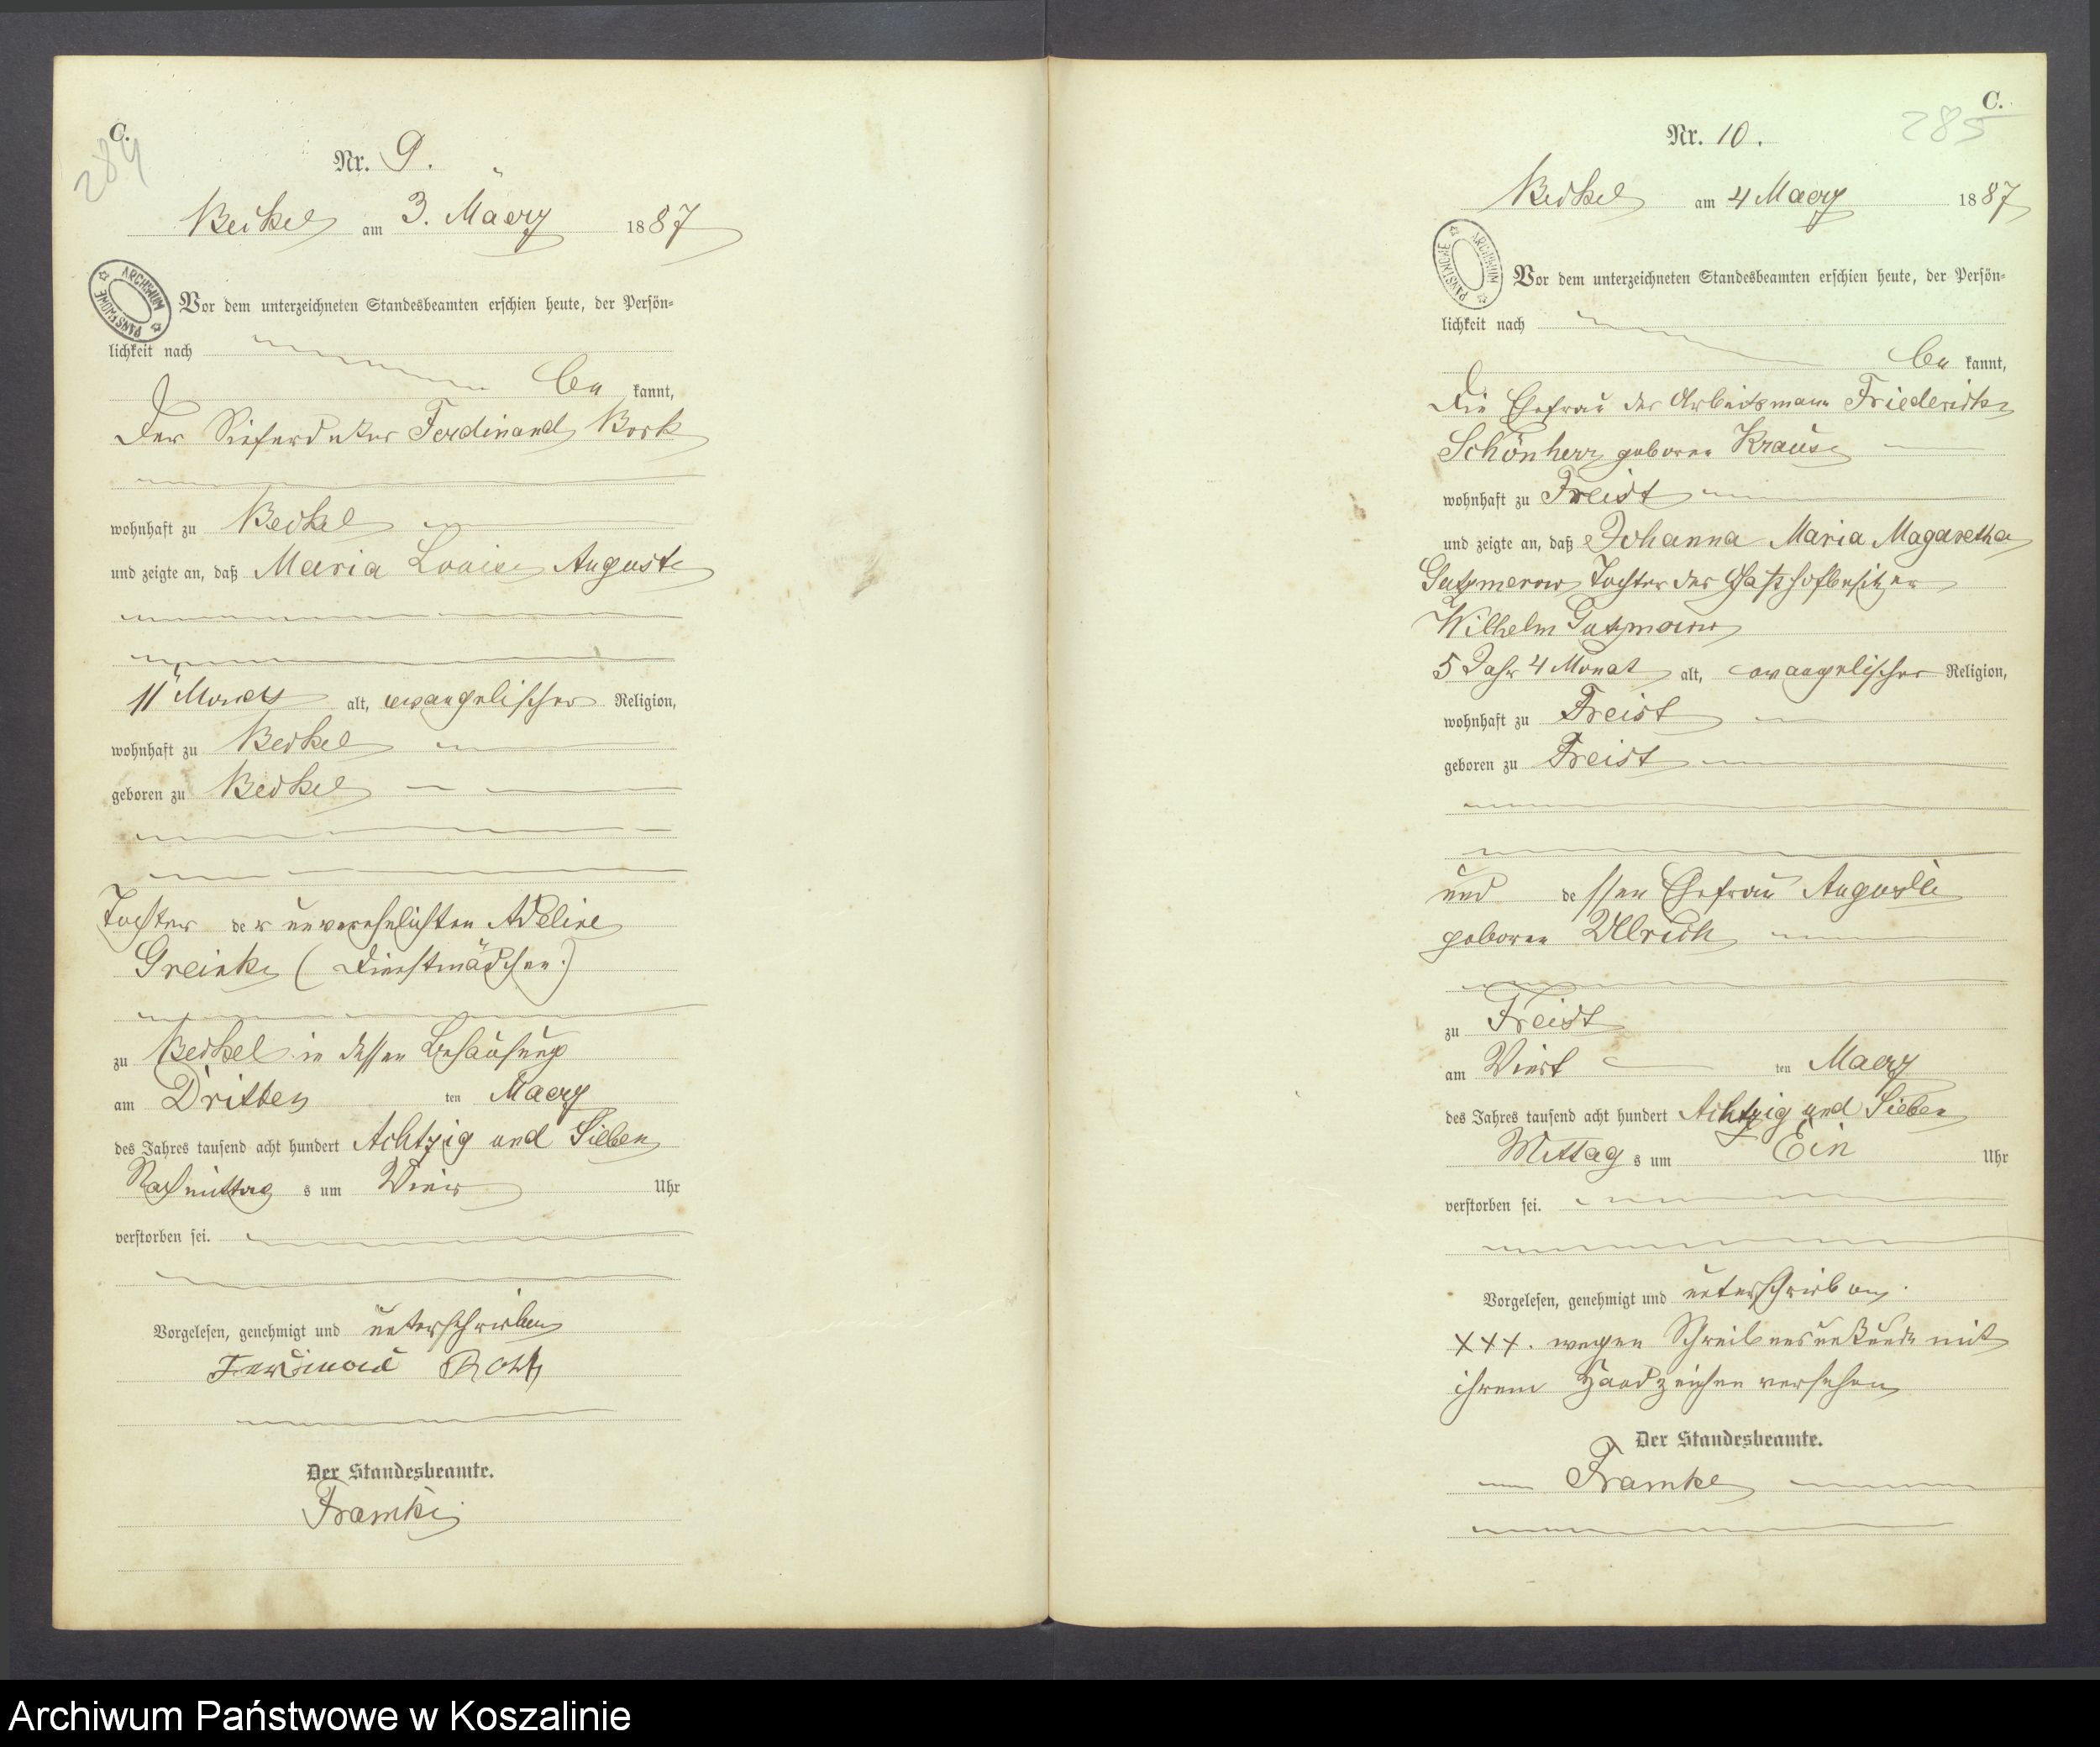 C.
284
Nr. 9.
Beikel am 3. Maerz 1887
ARCHIWUM PAŃSTWOWE
Vor dem unterzeichneten Standesbeamten erschien heute, der Persön-
lichkeit nach
be kannt,
Der Ferdinand Bork
wohnhaft zu Beikel
und zeigte an, daß Maria Louise Auguste
11 Monat alt, evangelischer Religion,
wohnhaft zu Beikel
geboren zu Beikel
Tochter der unverehelichten Adeline
Greinke (Dienstmädchen:)
zu Beikel in dessen Behausung
am Dritten ten Maerz
des Jahres tausend acht hundert Achtzig und Sieben
Nachmittag s um Vier Uhr
verstorben sei.
Vorgelesen, genehmigt und unterschrieben
Ferdinand
Der Standesbeamte.
Framke
C.
285
Nr. 10.
Beikel am 4 Maerz 1887
ARCHIWUM PAŃSTWOWE
Vor dem unterzeichneten Standesbeamten erschien heute, der Persön-
lichkeit nach
be kannt,
Die Ehefrau des Arbeitsmann Friederike
Schönherr geboren Krause
wohnhaft zu Freist
und zeigte an, daß Johanna Maria Magaretha
Gutzmerow Tochter des Gasthofbesitzer
Wilhelm Gutzmerow
5 Jahr 4 Monat alt, evangelischer Religion,
wohnhaft zu Freist
geboren zu Freist
und dessen Ehefrau Auguste
geboren Ulrich
zu Freist
am Viert ten Maerz
des Jahres tausend acht hundert Achtzig und Sieben
Mittag s um Ein Uhr
verstorben sei.
Vorgelesen, genehmigt und unterschrieben.
XXX. wegen Schreibensunkunde mit
ihrem Handzeichen versehen
Der Standesbeamte.
Framke
Archiwum Państwowe w Koszalinie